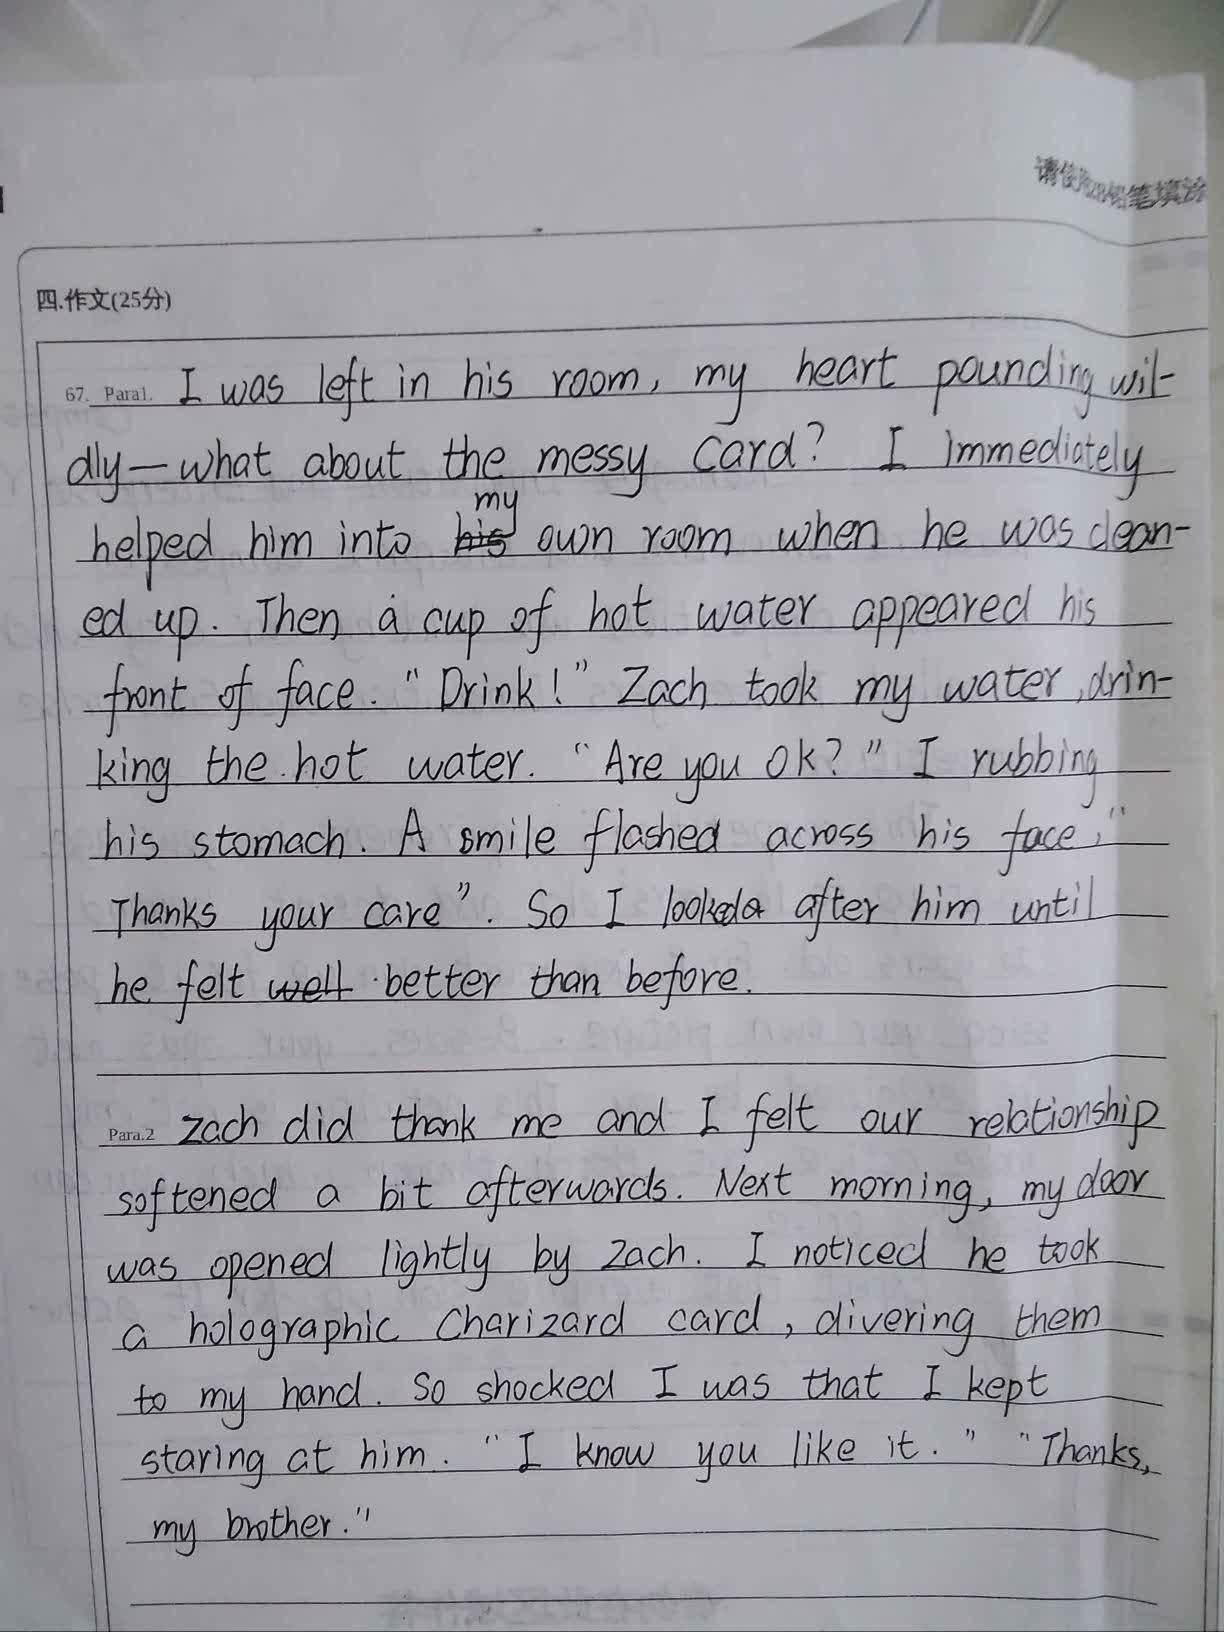 请使用2B铅笔填涂
四.作文(25分)
67. Para1. I was left in his room, my heart pounding wil-
dly—what about the messy card? I immediately
my
helped him into his own room when he was clean-
ed up. Then a cup of hot water appeared his
front of face. "Drink!" Zach took my water, drin-
king the hot water. "Are you ok?" I rubbing
his stomach. A smile flashed across his face, "
Thanks your care". So I looked after him until
he felt well better than before.
Para.2 Zach did thank me and I felt our relationship
softened a bit afterwards. Next morning, my door
was opened lightly by Zach. I noticed he took
a holographic Charizard card, divering them
to my hand. So shocked I was that I kept
staring at him. "I know you like it." "Thanks,
my brother."